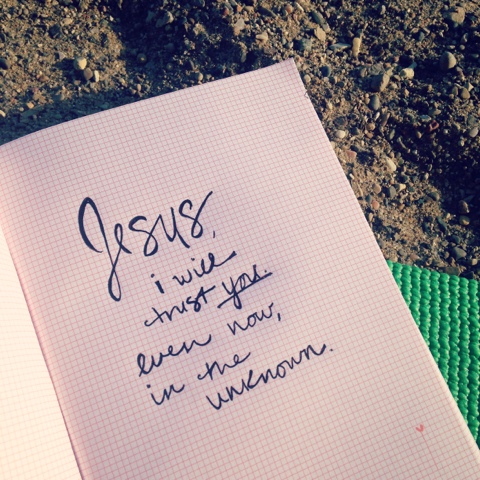 Jesus,
i will
trust you.
even now,
in the
unknown.